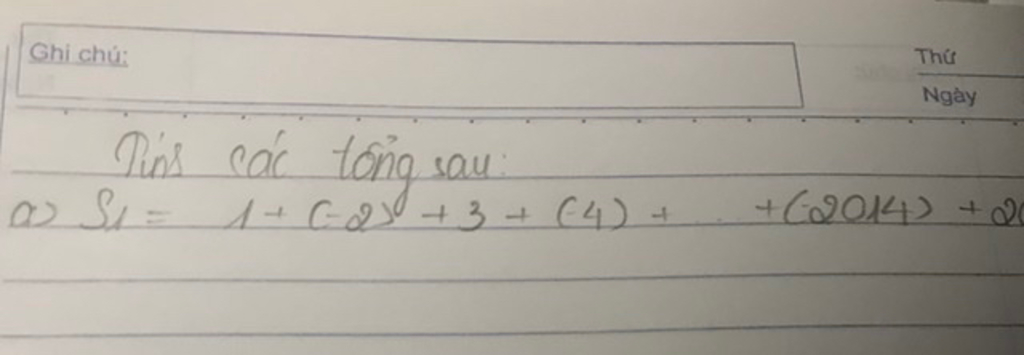 Ghi chú:
Thứ
Ngày
Tính các tổng sau:
a) S1 = 1 + (-2) + 3 + (-4) + ... + (-2014) + 20